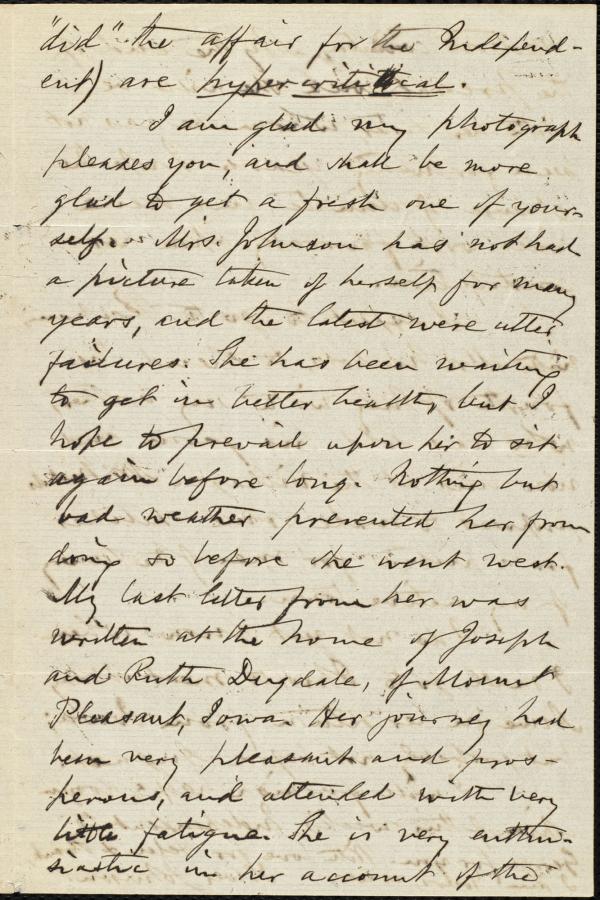 "did" the affair for the Independ-
ent) are hypercritical.
I am glad my photograph
pleases you, and shall be more
glad to get a fresh one of your-
self. Mrs. Johnson has not had
a picture taken of herself for many
years, and the latest were utter
failures. She has been waiting
to get in better health, but I
hope to prevail upon her to sit
again before long. Nothing but
bad weather prevented her from
doing so before she went west.
My last letter from her was
written at the home of Joseph
and Ruth Dugdale, of Mount
Pleasant, Iowa. Her journey had
been very pleasant and pros-
perous, and attended with very
little fatigue. She is very enthu-
siastic in her account of the